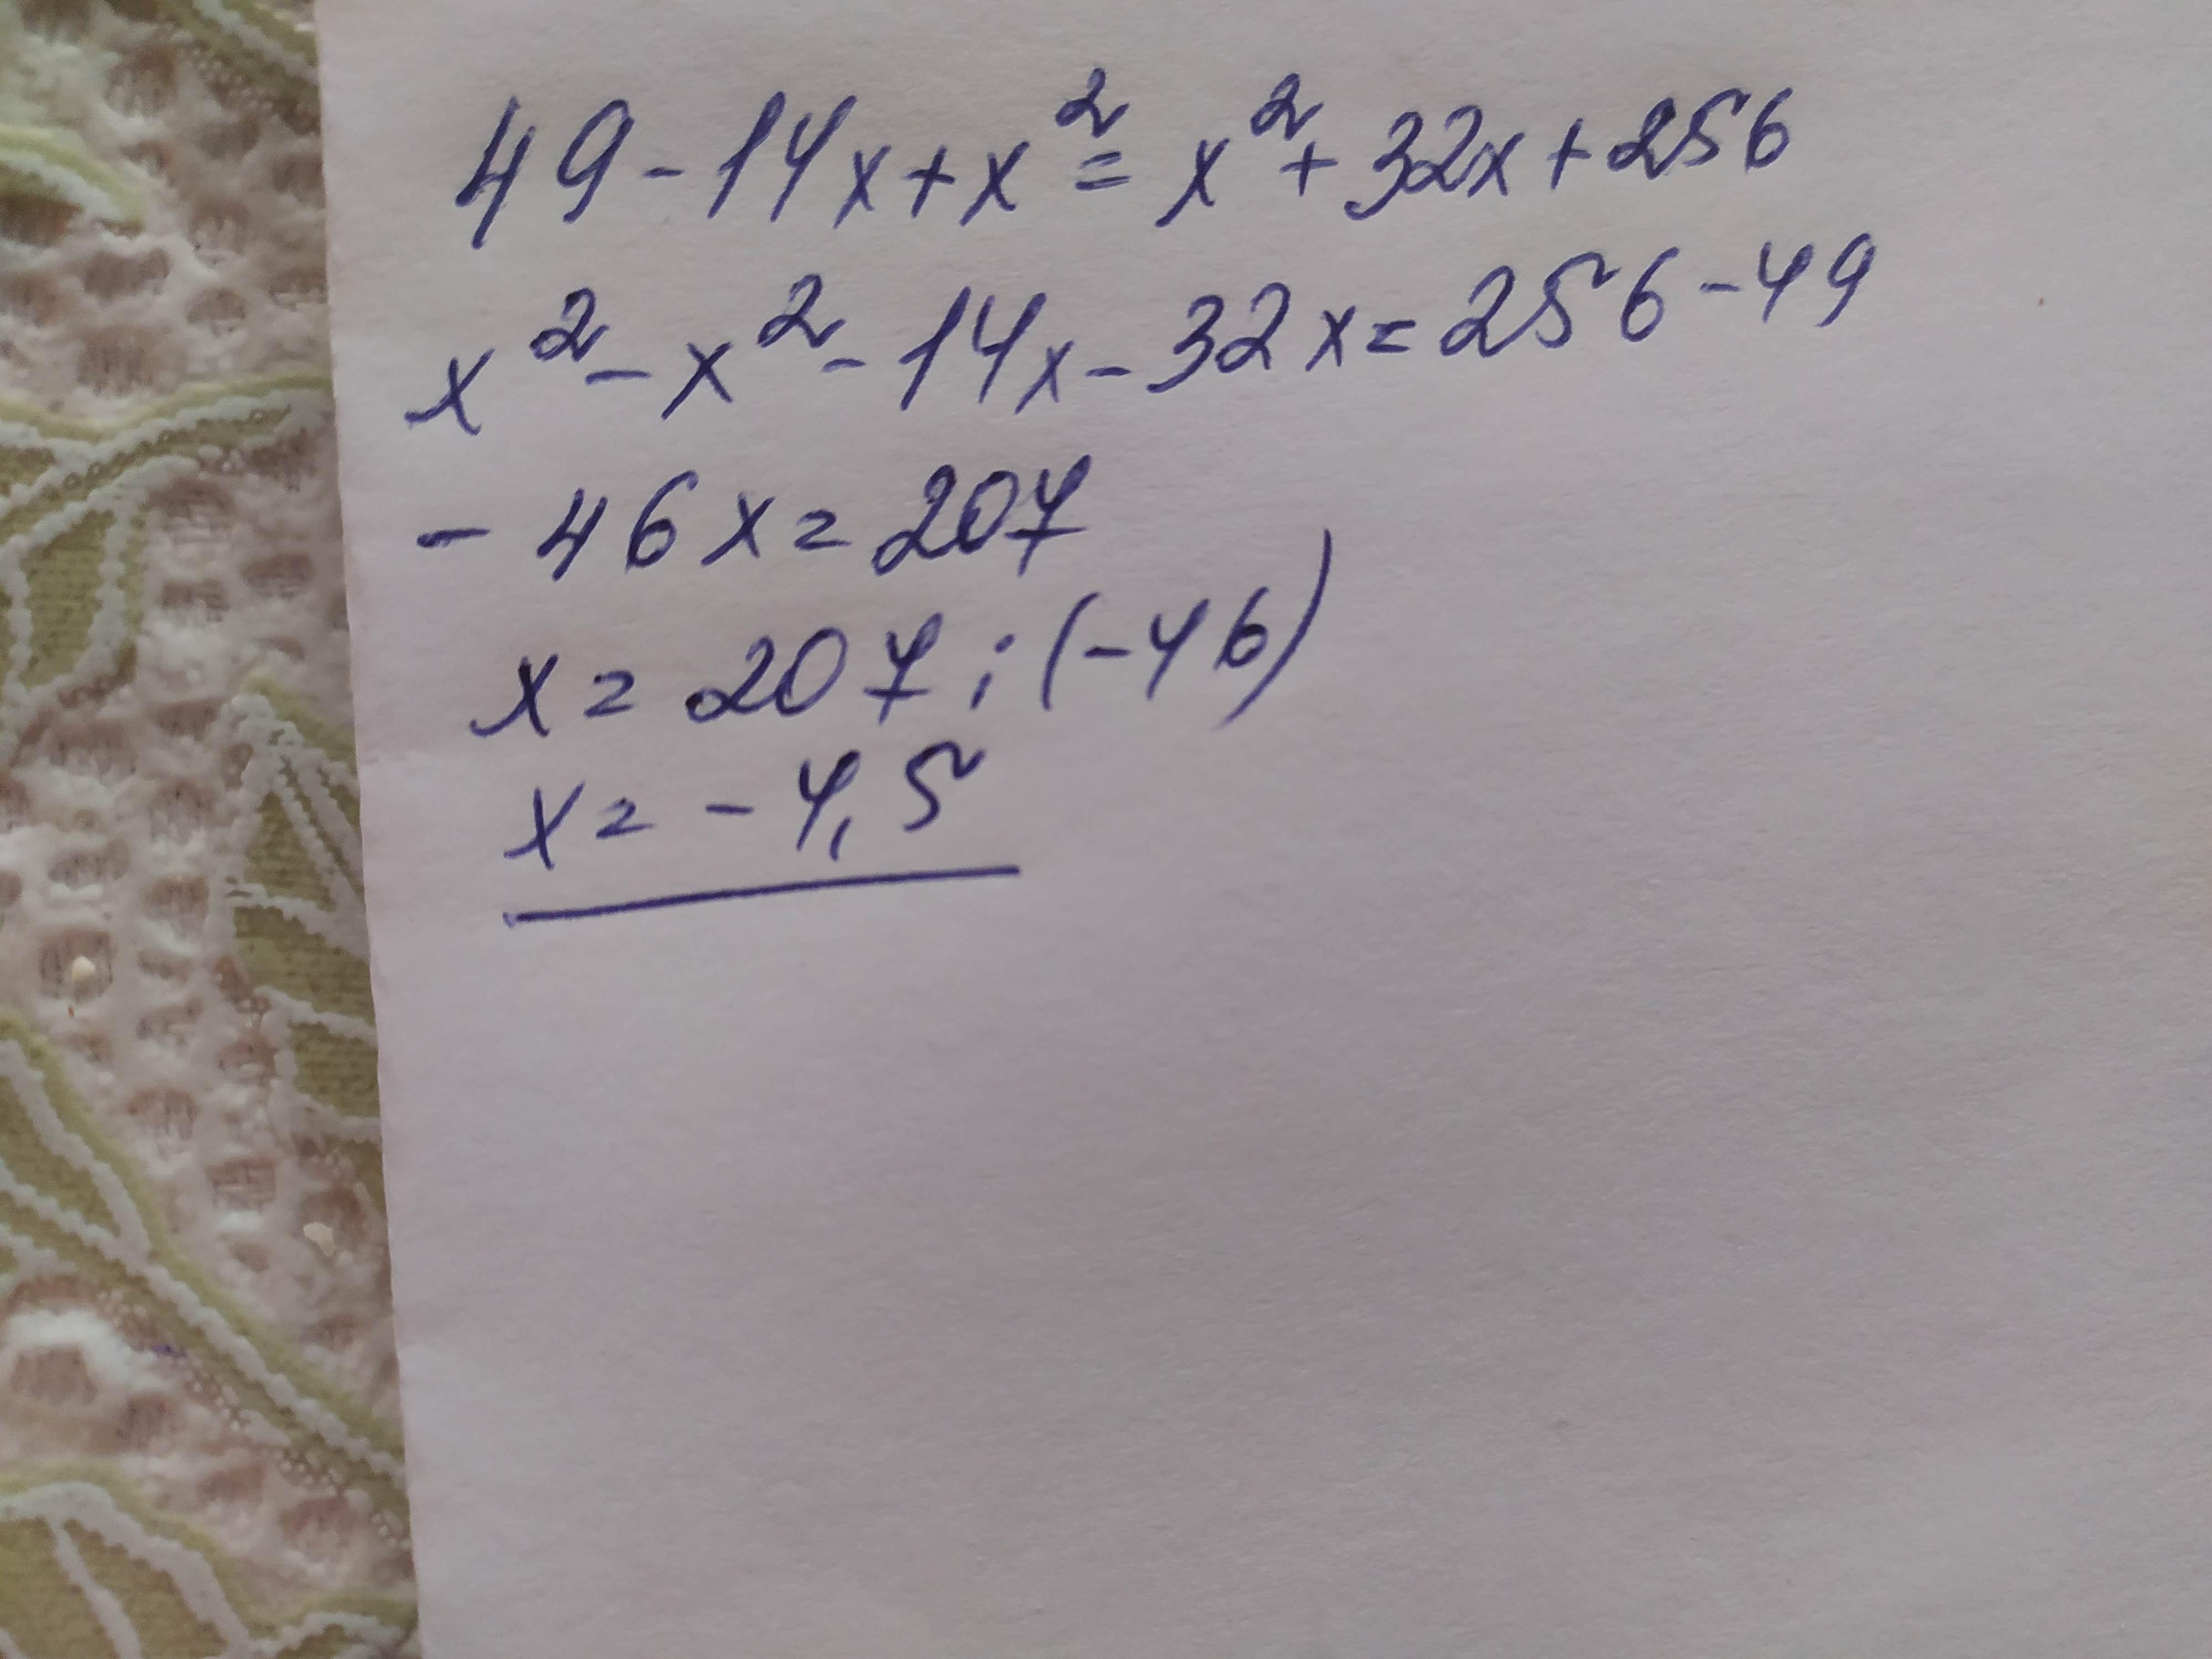 49-14x+x²=x²+32x+256
x²-x²-14x-32x=256-49
-46x=207
x=207:(-46)
x=-4,5